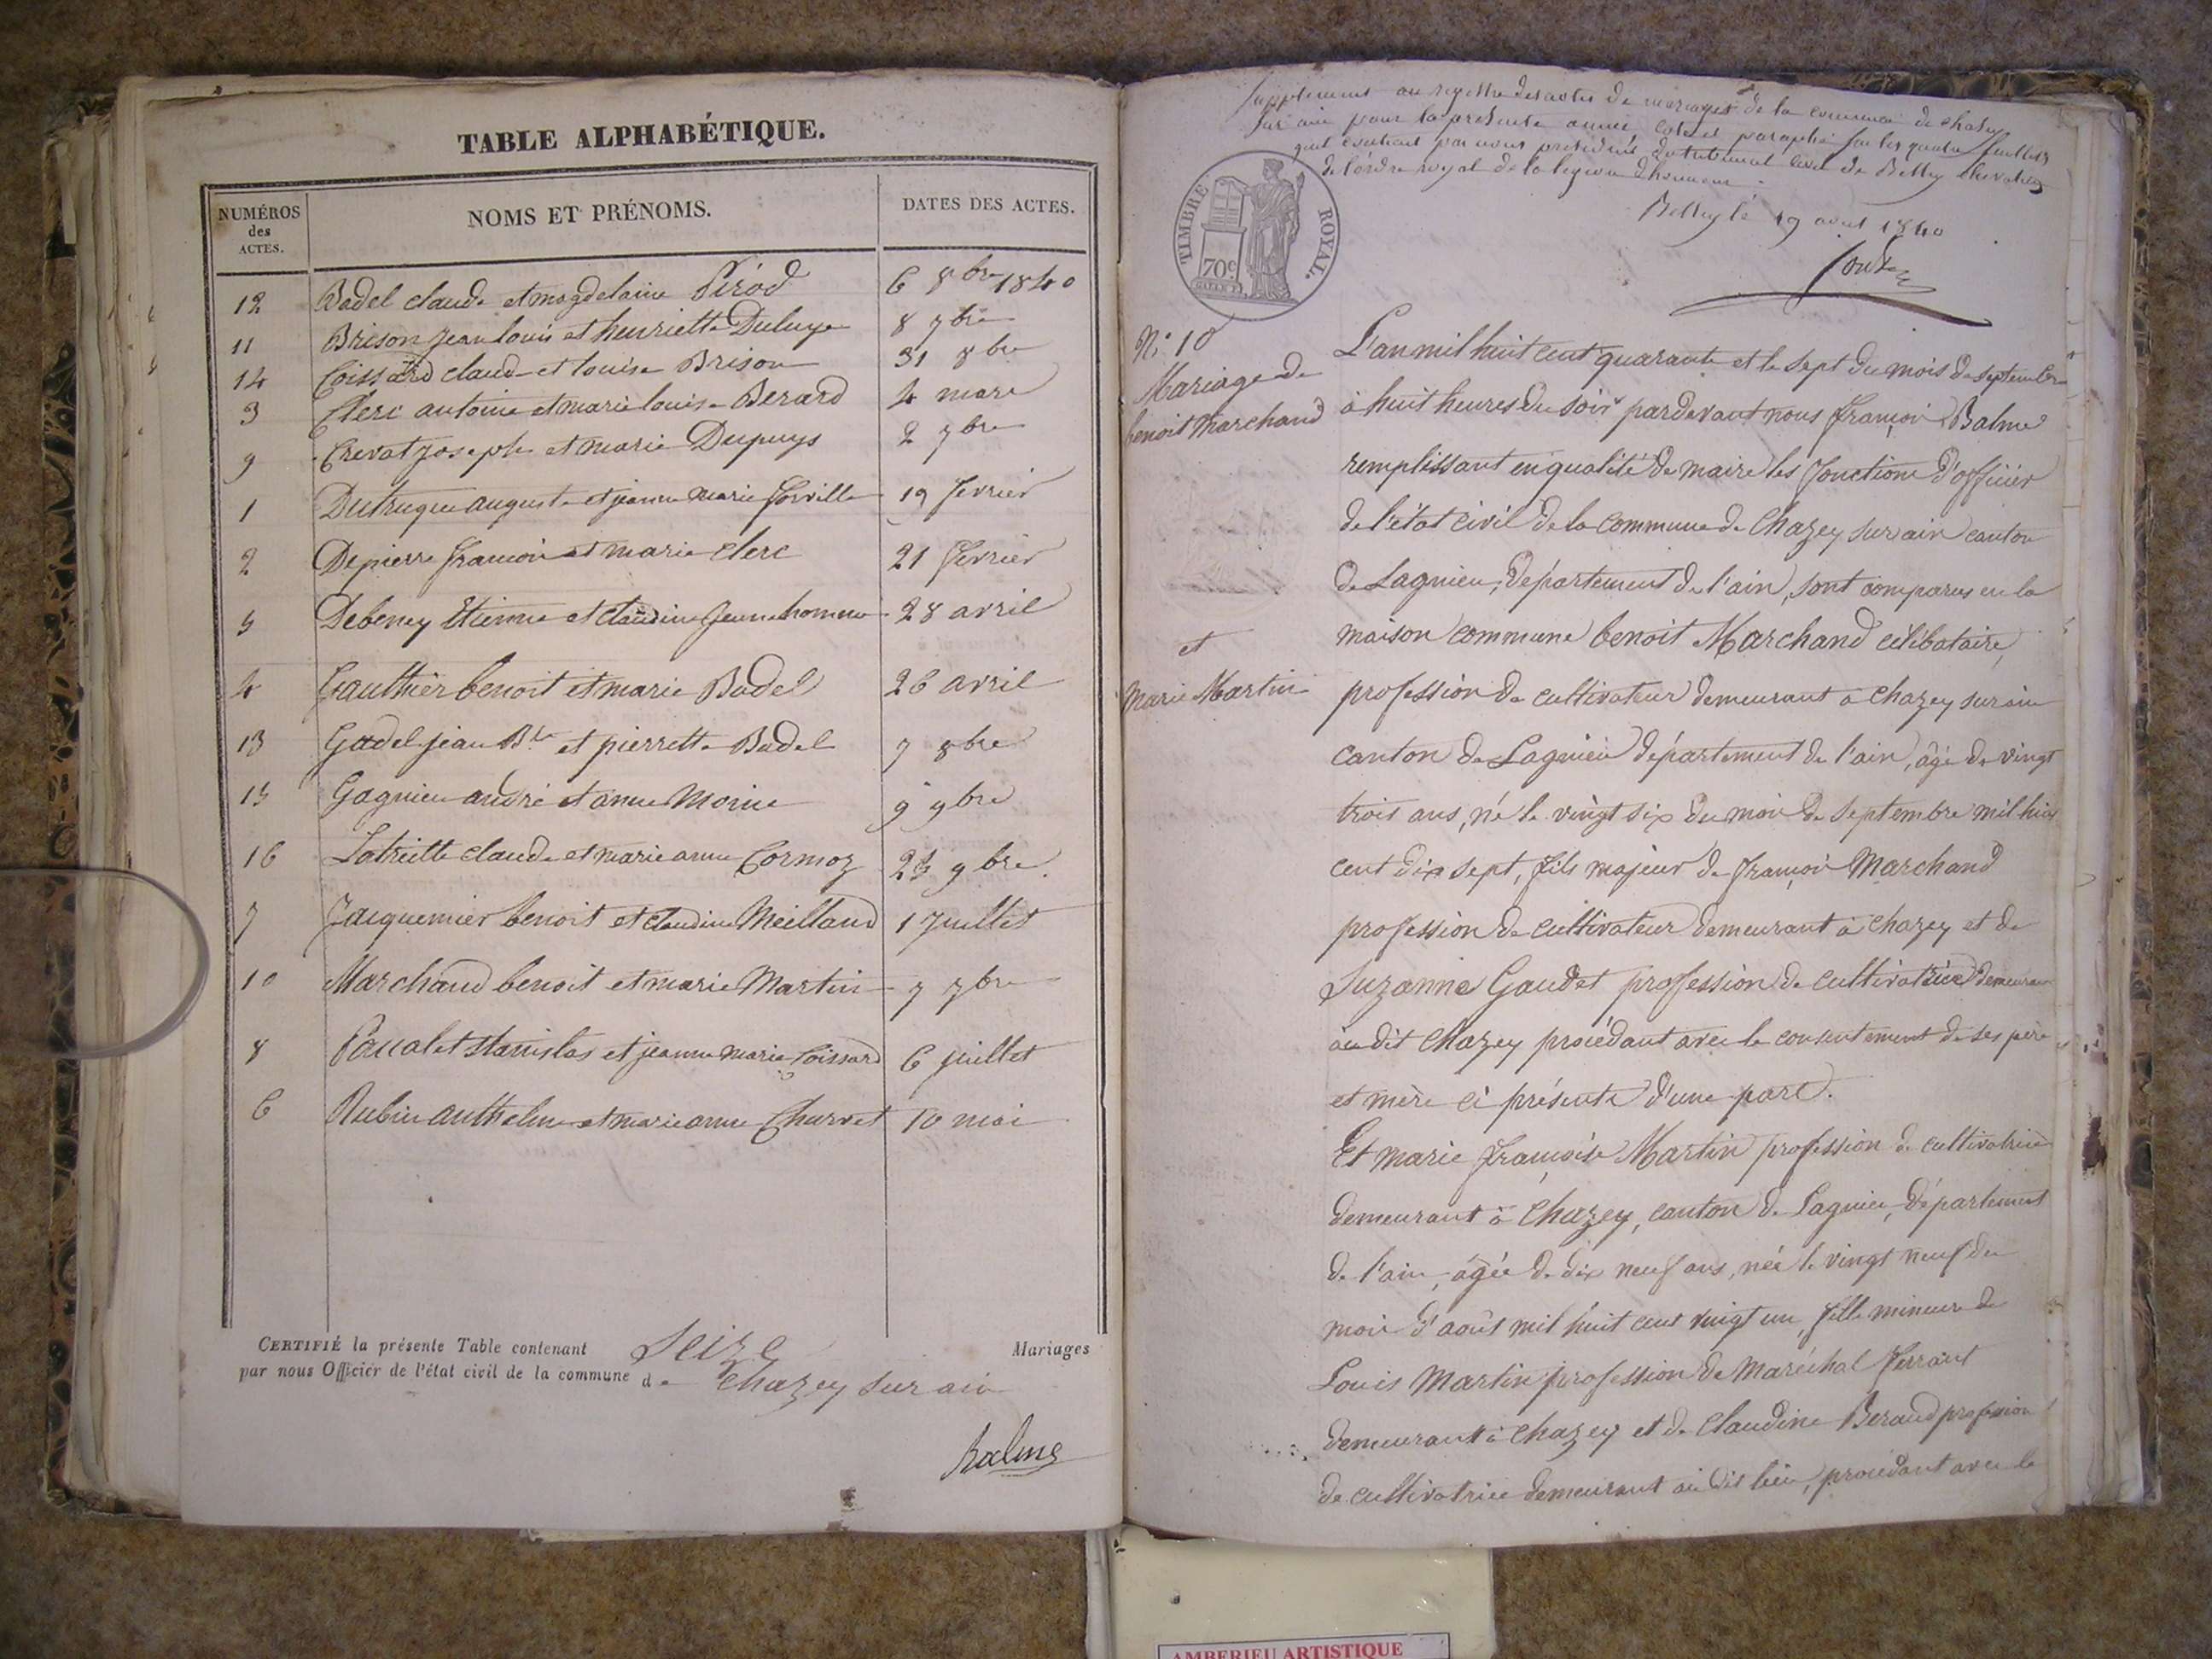 TABLE ALPHABÉTIQUE.
NUMÉROS des ACTES. NOMS ET PRÉNOMS. DATES DES ACTES.
12 Badel claude et magdelaine Pérod 6 8bre 1840
11 Brison jean louis et henriette 8 7bre
14 Coissard claude et louise Brison 31 8bre
3 Clerc antoine et marie louise Berard 4 mars
9 Crevat joseph et marie Dupuys 2 7bre
1 auguste et jeanne marie 19 fevrier
2 Depierre françois et marie clerc 21 fevrier
5 Debeney Etienne et claudine jeunehomme 28 avril
4 Gauthier benoit et marie Badel 26 avril
13 Gadel jean Bte et pierrette Badel 7 8bre
15 Gagnieu andré et anne Moine 9 9bre
16 claude et marie anne Cormoz 9bre.
7 Jacquemier benoit et claudine Meilland 1 juillet
10 Marchand benoit et marie Martin 7 7bre
8 stanislas et jeanne marie Coissard 6 juillet
6 Rubin anthelme et marie anne Charvet 10 mai
CERTIFIÉ la présente Table contenant Seize Mariages
par nous Officier de l'état civil de la commune de chazey sur ain
Balme
Supplement au registre des actes de mariages de la commune de chazey
sur ain pour la presente année, coté et paraphé sur les quatre feuillets
quil contient par nous president du tribunal civil de Belley chevalier
de l'ordre royal de la legion d'honneur.
Belley le 19 aout 1840
TIMBRE ROYAL.
70c
N° 10
Mariage de
benoit Marchand
et
marie Martin
L'an mil huit cent quarante et le sept du mois de septembre
à huit heures du soir pardevant nous françois Balme
remplissant en qualité de maire les fonctions d'officier
de l'état civil de la commune de Chazey sur ain canton
de Lagnieu, département de l'ain, sont comparus en la
maison commune benoit Marchand célibataire,
profession de cultivateur demeurant à chazey sur ain
canton de Lagnieu département de l'ain, âgé de vingt
trois ans, né le vingt six du mois de septembre mil huit
cent dix sept, fils majeur de françois Marchand
profession de cultivateur demeurant à chazey et de
Suzanne Gaudet profession de cultivatrice demeurant
au dit chazey procédant avec le consentement de ses père
et mère ci présents d'une part.
Et marie françoise Martin profession de cultivatrice
demeurant à Chazey, canton de Lagnieu, département
de l'ain, âgée de dix neuf ans, née le vingt neuf du
mois d'août mil huit cent vingt un, fille mineure de
Louis Martin profession de maréchal ferrant
demeurant à chazey et de claudine Beraud profession
de cultivatrice demeurant au dit lieu, procédant avec le
AMBERIEU ARTISTIQUE